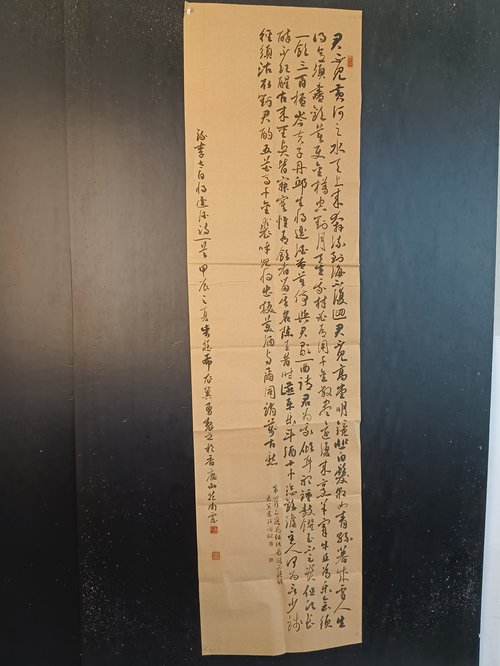 君不見黃河之水天上來奔流到海不復迴君不見高堂明鏡悲白髮朝如青絲暮成雪人生
得意須盡歡莫使金樽空對月天生我材必有用千金散盡還復來烹羊宰牛且為樂會須
一飲三百杯岑夫子丹邱生將進酒杯莫停與君歌一曲請君為我傾耳聽鐘鼓饌玉不足貴但願長
醉不復醒古來聖賢皆寂寞惟有飲者留其名陳王昔時讌平樂斗酒十千恣歡謔主人何為言少錢
徑須沽取對君酌五花馬千金裘呼兒將出換美酒與爾同銷萬古愁
李太白將進酒詩一首甲辰之夏